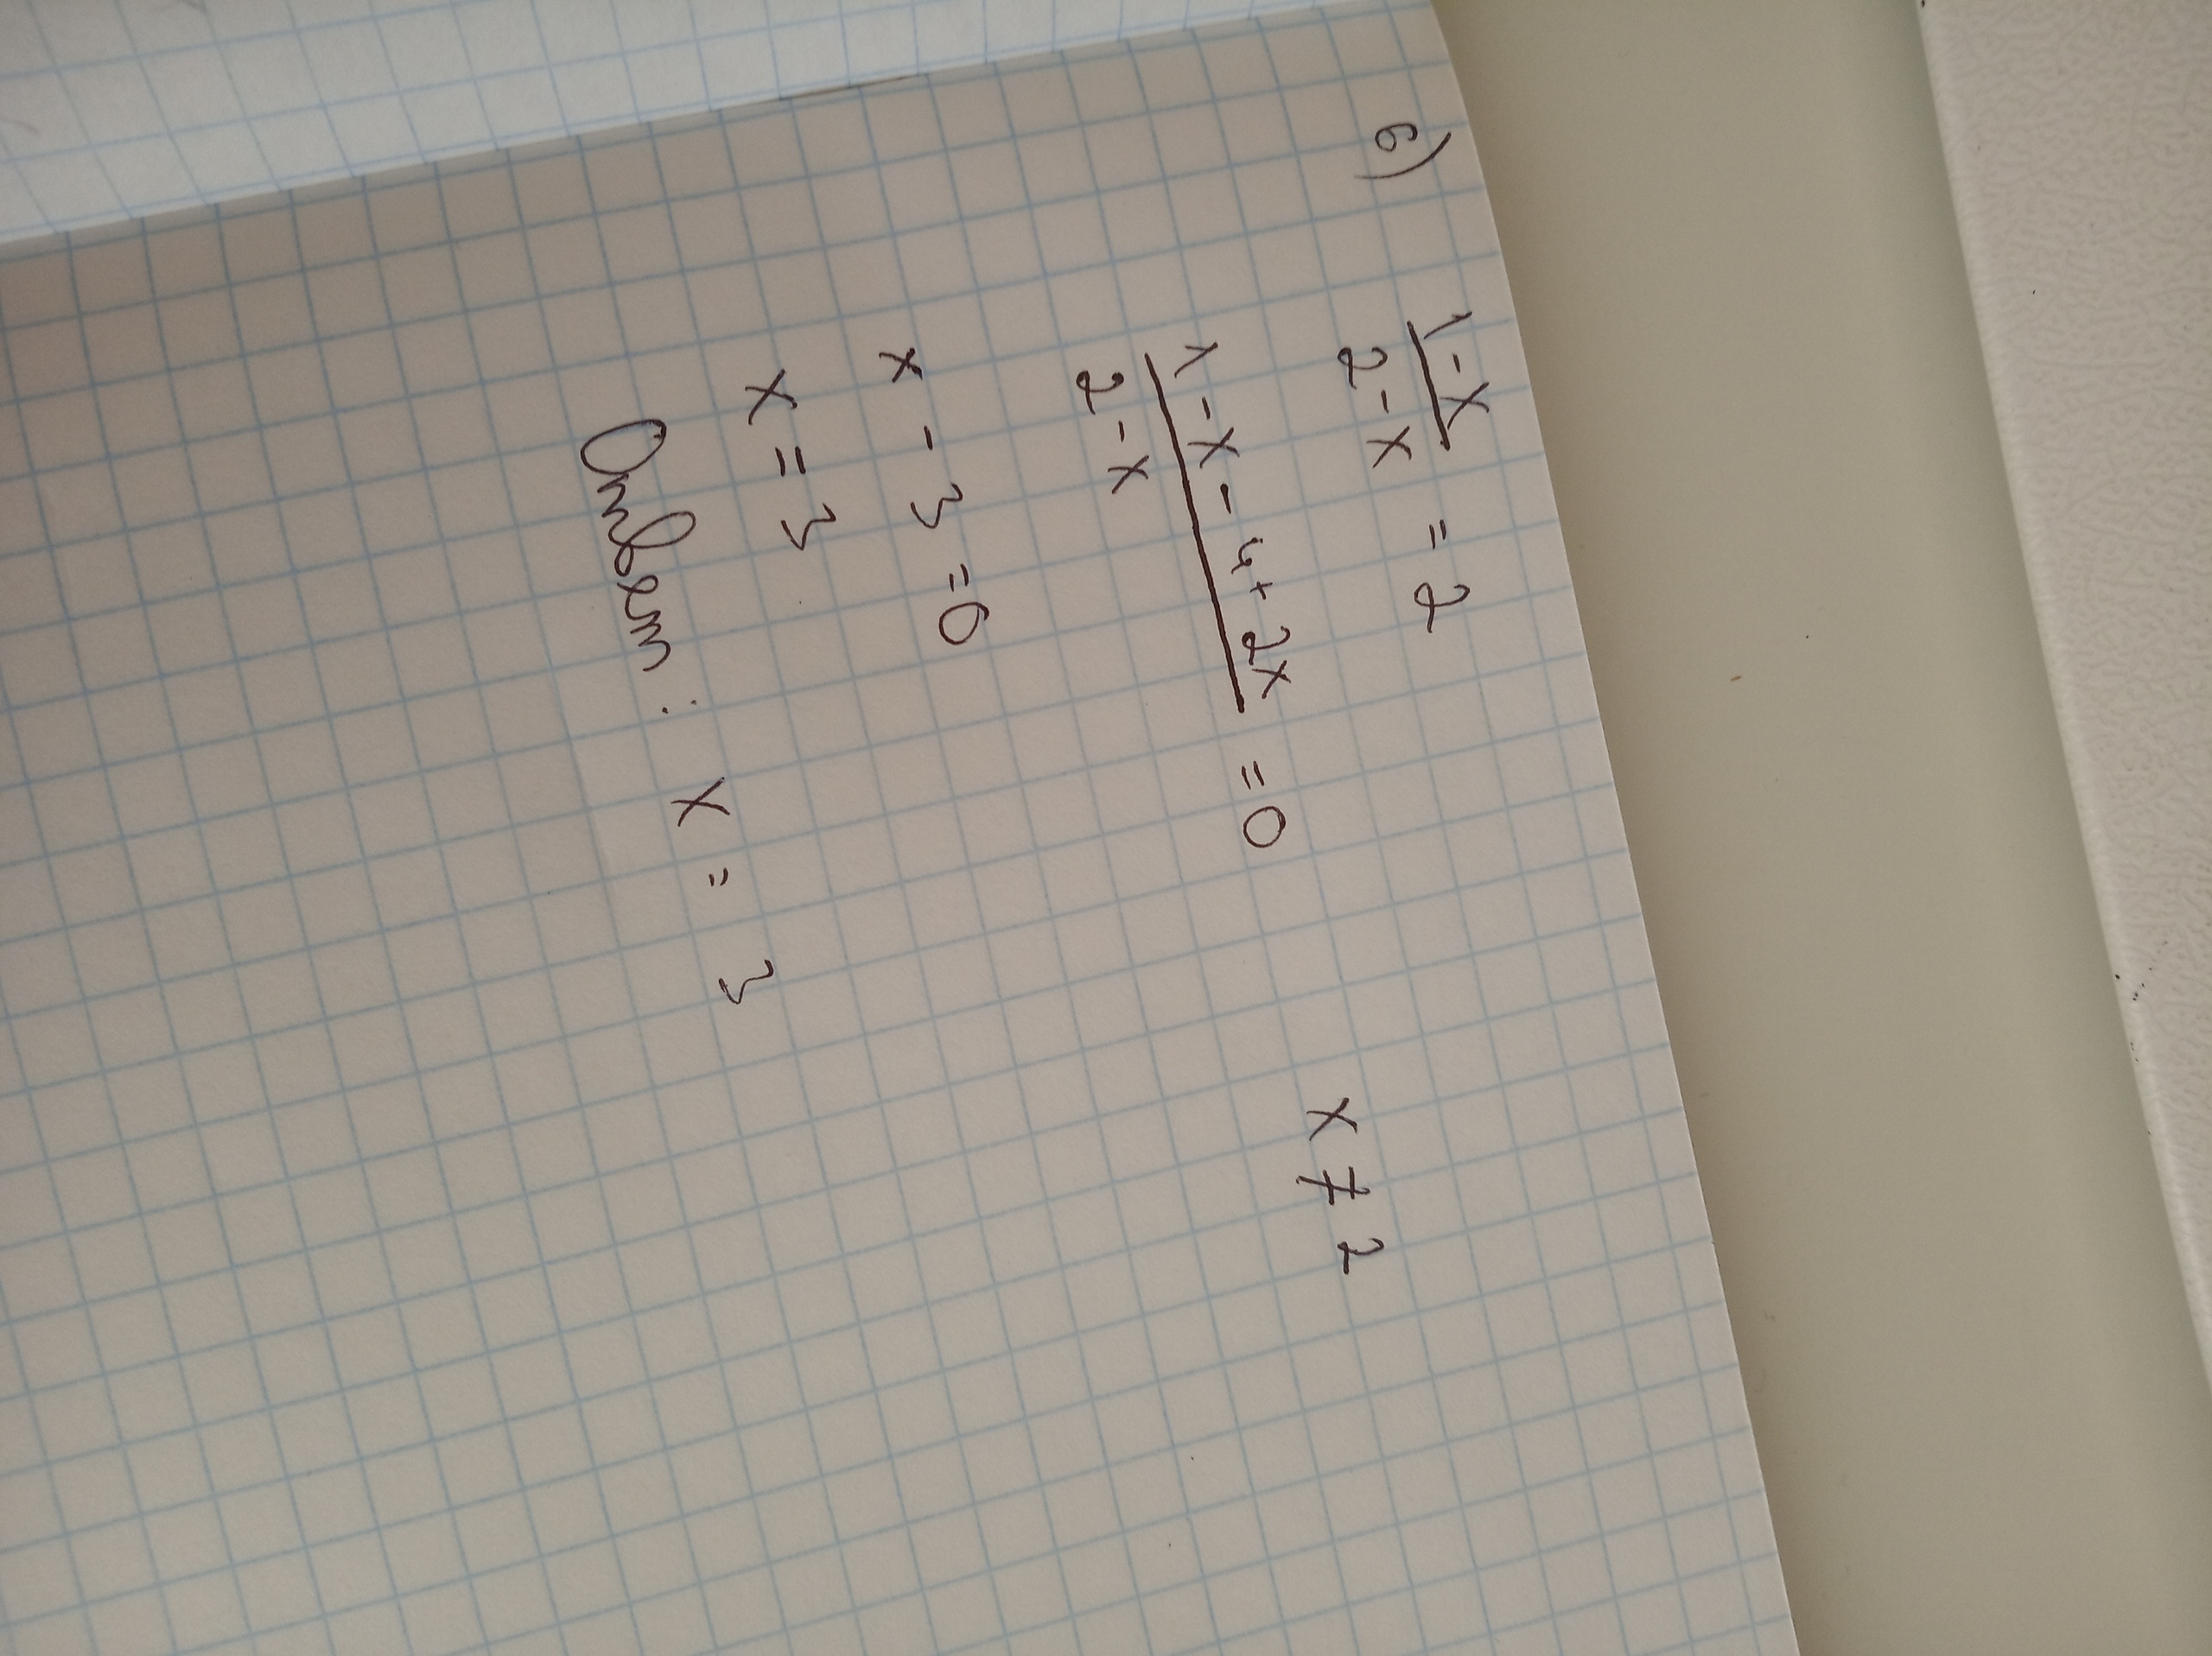 6) (1-x)/(2-x) = 2
x ≠ 2
(1-x-4+2x)/(2-x) = 0
x - 3 = 0
x = 3
Ответ: x = 3